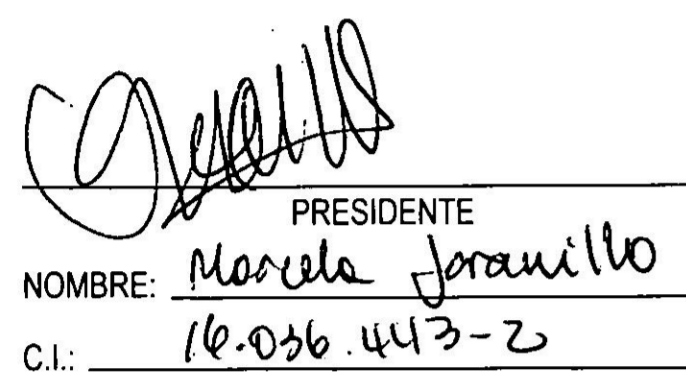 PRESIDENTE
NOMBRE: Marcela Jaramillo
C.I.: 16.036.443-2